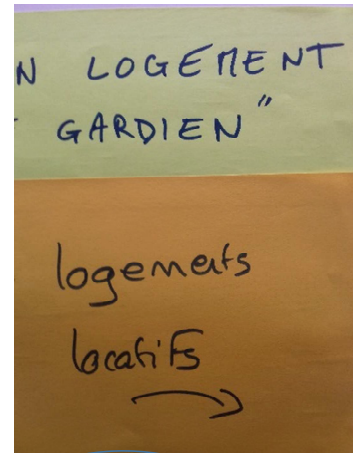 N LOGEMENT
GARDIEN"
logements
locatifs